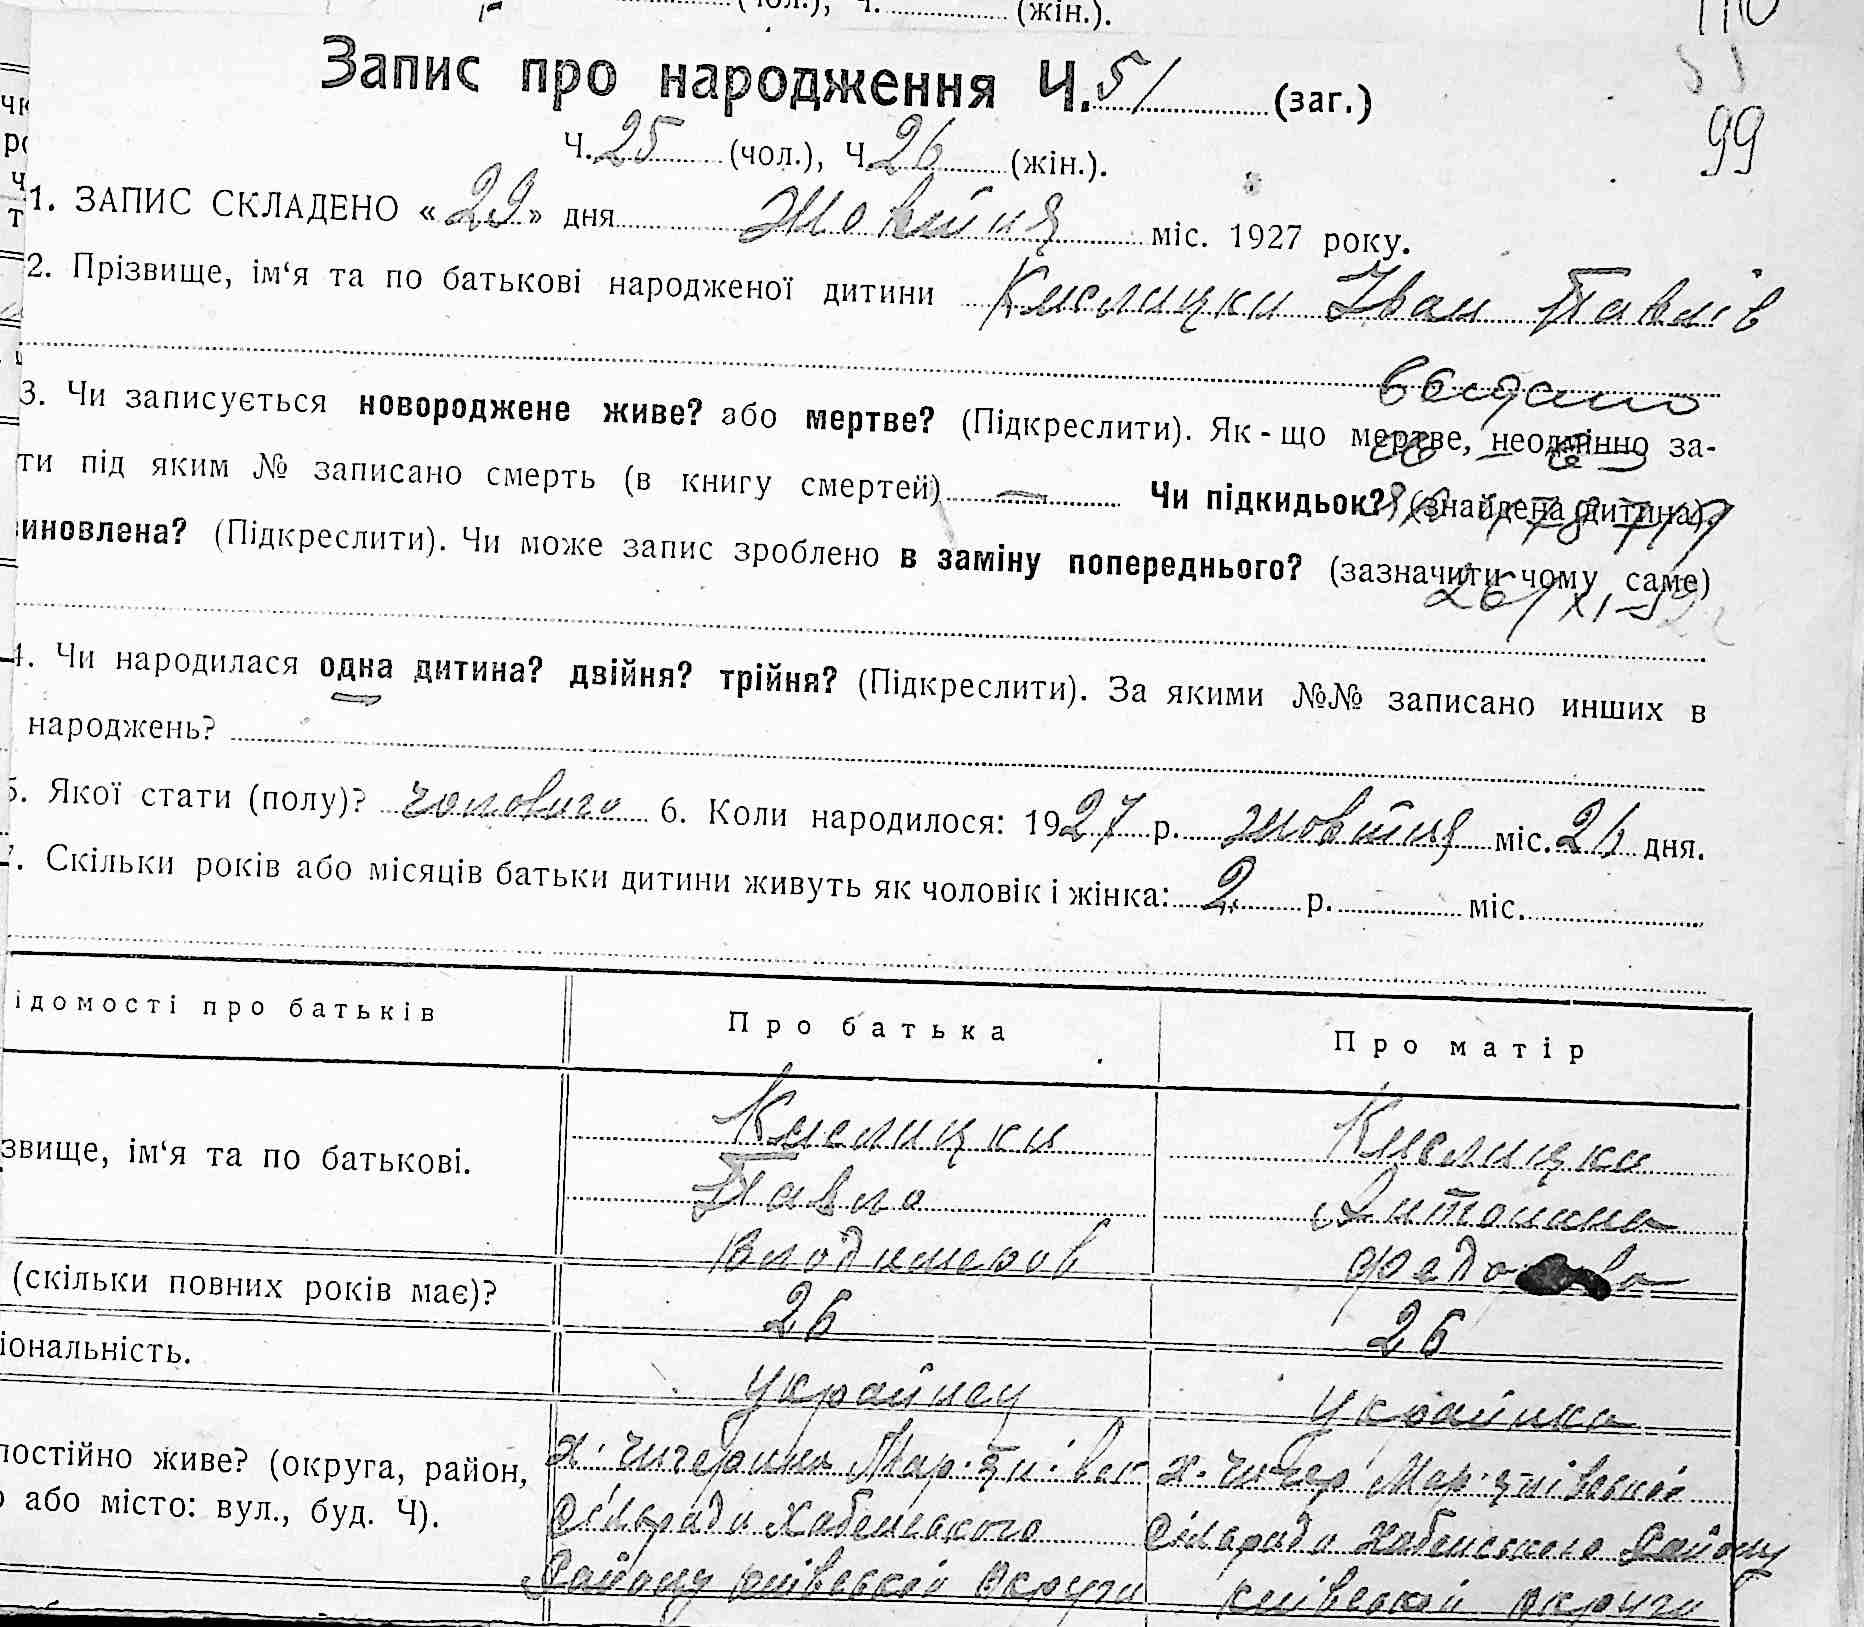 (чол.), Ч. (жін.).
Запис про народження Ч. 51 (заг.)
99
Ч. 25 (чол.), Ч. 26 (жін.).
1. ЗАПИС СКЛАДЕНО «29» дня Жовтня міс. 1927 року.
2. Прізвище, ім‘я та по батькові народженої дитини Кислицки Іван Павлів
3. Чи записується новороджене живе? або мертве? (Підкреслити). Як-що мертве, неодмінно за-
ти під яким № записано смерть (в книгу смертей) — Чи підкидьок? (знайдена дитина).
иновлена? (Підкреслити). Чи може запис зроблено в заміну попереднього? (зазначити чому саме)
4. Чи народилася одна дитина? двійня? трійня? (Підкреслити). За якими №№ записано инших в
народжень?
5. Якої стати (полу)? чоловичо 6. Коли народилося: 1927 р. жовтня міс. 26 дня.
7. Скільки років або місяців батьки дитини живуть як чоловік і жінка: 2 р. міс.
ідомості про батьків Про батька Про матір
звище, ім‘я та по батькові.
Кислицки Кислицки
Павло Антонина
Володимеров
(скільки повних років має)? 26 26
іональність. Українец Українка
постійно живе? (округа, район,
або місто: вул., буд. Ч).
х. Чичерина х. Чичер
Сільради Хабенського Сільради Хабенського Району
Району Київської Округи Київської Округи